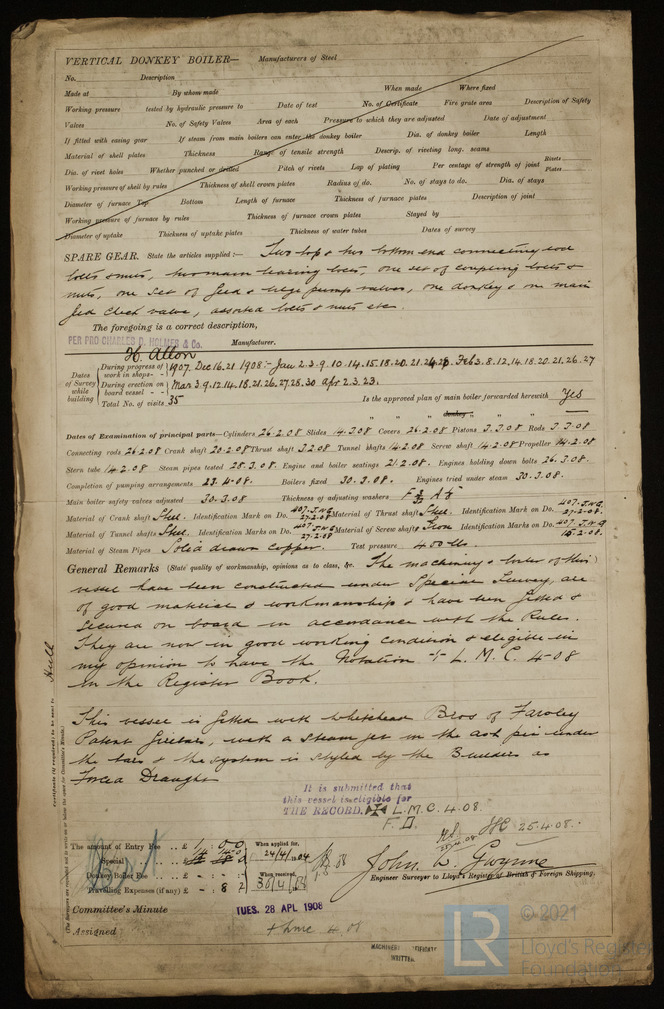 VERTICAL DONKEY BOILER— Manufacturers of Steel
No. Description
Made at By whom made When made Where fixed
Working pressure tested by hydraulic pressure to Date of test No. of Certificate Fire grate area Description of Safety
Valves No. of Safety Valves Area of each Pressure to which they are adjusted Date of adjustment
If fitted with easing gear If steam from main boilers can enter the donkey boiler Dia. of donkey boiler Length
Material of shell plates Thickness Range of tensile strength Descrip. of riveting long. seams
Dia. of rivet holes Whether punched or drilled Pitch of rivets Lap of plating Per centage of strength of joint Rivets Plates
Working pressure of shell by rules Thickness of shell crown plates Radius of do. No. of stays to do. Dia. of stays
Diameter of furnace Top Bottom Length of furnace Thickness of furnace plates Description of joint
Working pressure of furnace by rules Thickness of furnace crown plates Stayed by
Diameter of uptake Thickness of uptake plates Thickness of water tubes Dates of survey
SPARE GEAR. State the articles supplied:— Two top & two bottom end connecting rod
bolts & nuts, two main bearing bolts, one set of coupling bolts &
nuts, one set of feed & bilge pump valves, one donkey & one main
feed check valve, assorted bolts & nuts etc.
The foregoing is a correct description,
PER PRO CHARLES D. HOLMES & Co. Manufacturer.
H. Allon
Dates of Survey while building
During progress of work in shops- - 1907. Dec 16.21 1908:- Jan 2.3.9.10.14.15.18.20.21. Feb 3.8.12.14.18.20.21.26.27
During erection on board vessel - - Mar 3.9.12.14.18.21.26.27.28.30 Apr 2.3.23.
Total No. of visits 35 Is the approved plan of main boiler forwarded herewith Yes
" " " donkey " " "
Dates of Examination of principal parts—Cylinders 26.2.08 Slides 14.3.08 Covers 26.2.08 Pistons 3.3.08 Rods 3.3.08
Connecting rods 26.2.08 Crank shaft 20.2.08 Thrust shaft 3.2.08 Tunnel shafts 14.2.08 Screw shaft 14.2.08 Propeller 14.2.08
Stern tube 14.2.08 Steam pipes tested 28.3.08 Engine and boiler seatings 21.2.08 Engines holding down bolts 26.3.08
Completion of pumping arrangements 23.4.08 Boilers fixed 30.3.08 Engines tried under steam 30.3.08
Main boiler safety valves adjusted 30.3.08 Thickness of adjusting washers
Material of Crank shaft Steel. Identification Mark on Do. 407.J.W.G. 27.2.08 Material of Thrust shaft Steel. Identification Mark on Do. 407.J.W.G. 27.2.08
Material of Tunnel shafts Steel. Identification Marks on Do. 407.J.W.G. 27.2.08 Material of Screw shafts Iron Identification Marks on Do. 407.J.W.G 15.2.08.
Material of Steam Pipes Solid drawn copper. Test pressure 400 lbs.
General Remarks (State quality of workmanship, opinions as to class, &c. The machinery & boiler of this)
vessel have been constructed under Special Survey, are
of good material & workmanship & have been fitted &
secured on board in accordance with the Rules.
They are now in good working condition & eligible in
my opinion to have the Notation + L. M. C. 4-08
in the Register Book.
This vessel is fitted with Whitehead Bros of Farnley
Patent firebars, with a steam jet in the ash pits under
the bars & the system is styled by the Builders as
Forced Draught
It is submitted that
this vessel is eligible for
THE RECORD. L.M.C. 4.08.
F.D.
25.4.08.
The amount of Entry Fee .. £ When applied for,
Special .. £ 24/4/1908
Donkey Boiler Fee .. £ - : - When received,
Travelling Expenses (if any) £ - : 8
John W. Gwynne
Engineer Surveyor to Lloyd's Register of British & Foreign Shipping,
Committee's Minute TUES. 28 APL 1908
Assigned + Lmc 4.08
MACHINERY CERTIFICATE
WRITTEN.
Certificate (if required) to be sent to Hull
(The Surveyors are requested not to write on or below the space for Committee's Minute.)
LR
© 2021
Lloyd's Register
Foundation